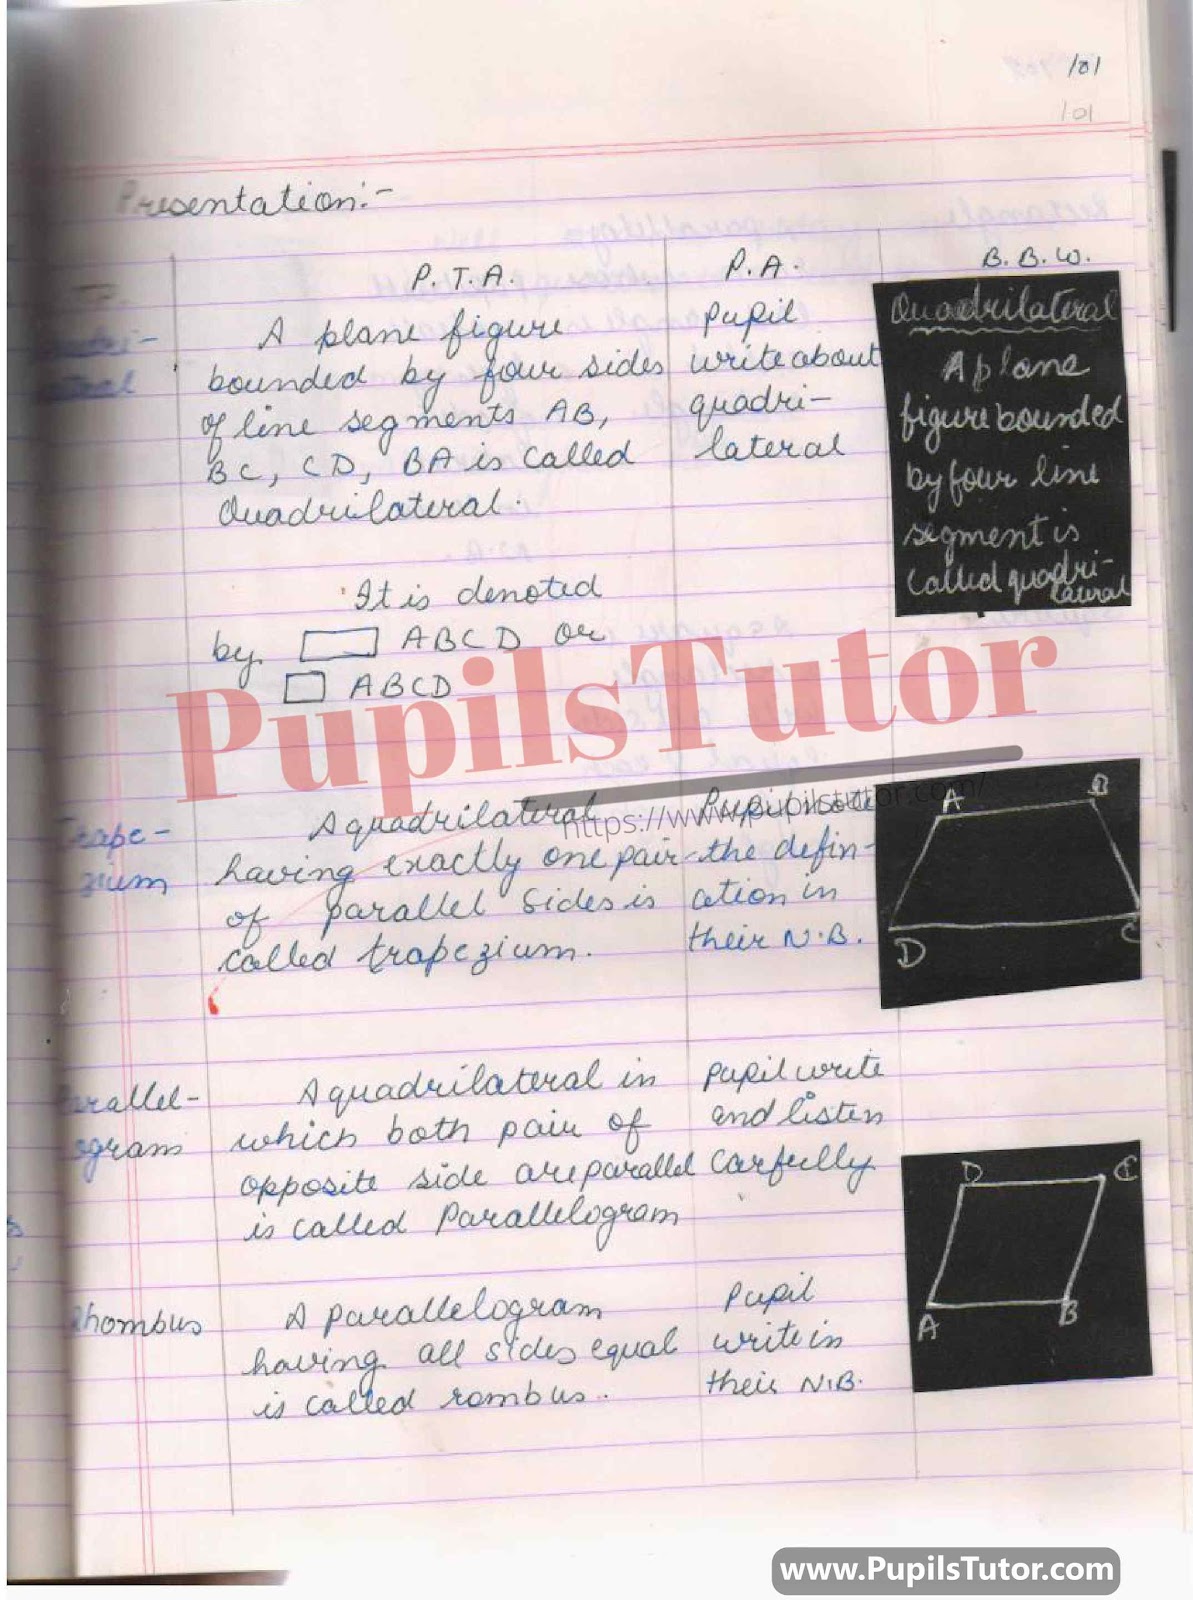 101
101
Presentation:-
P.T.A.
P.A.
B.B.W.
A plane figure
bounded by four sides
of line segments AB,
BC, CD, BA is called
Quadrilateral.
It is denoted
by ABCD or
ABCD
pupil
write about
quadri-
lateral
Quadrilateral
A plane
figure bounded
by four line
segment is
called quadri-
lateral
PupilsTutor
https://www.pupilstutor.com/
Trape-
zium
A quadrilateral
having exactly one pair
of parallel sides is
called trapezium.
Pupil note
the defin-
ation in
their N.B.
A B
D C
Parallel-
ogram
A quadrilateral in
which both pair of
opposite side are parallel
is called Parallelogram
pupil write
and listen
carfully
D C
A B
Rhombus
A parallelogram
having all sides equal
is called rombus.
Pupil
write in
their N.B.
www.PupilsTutor.com